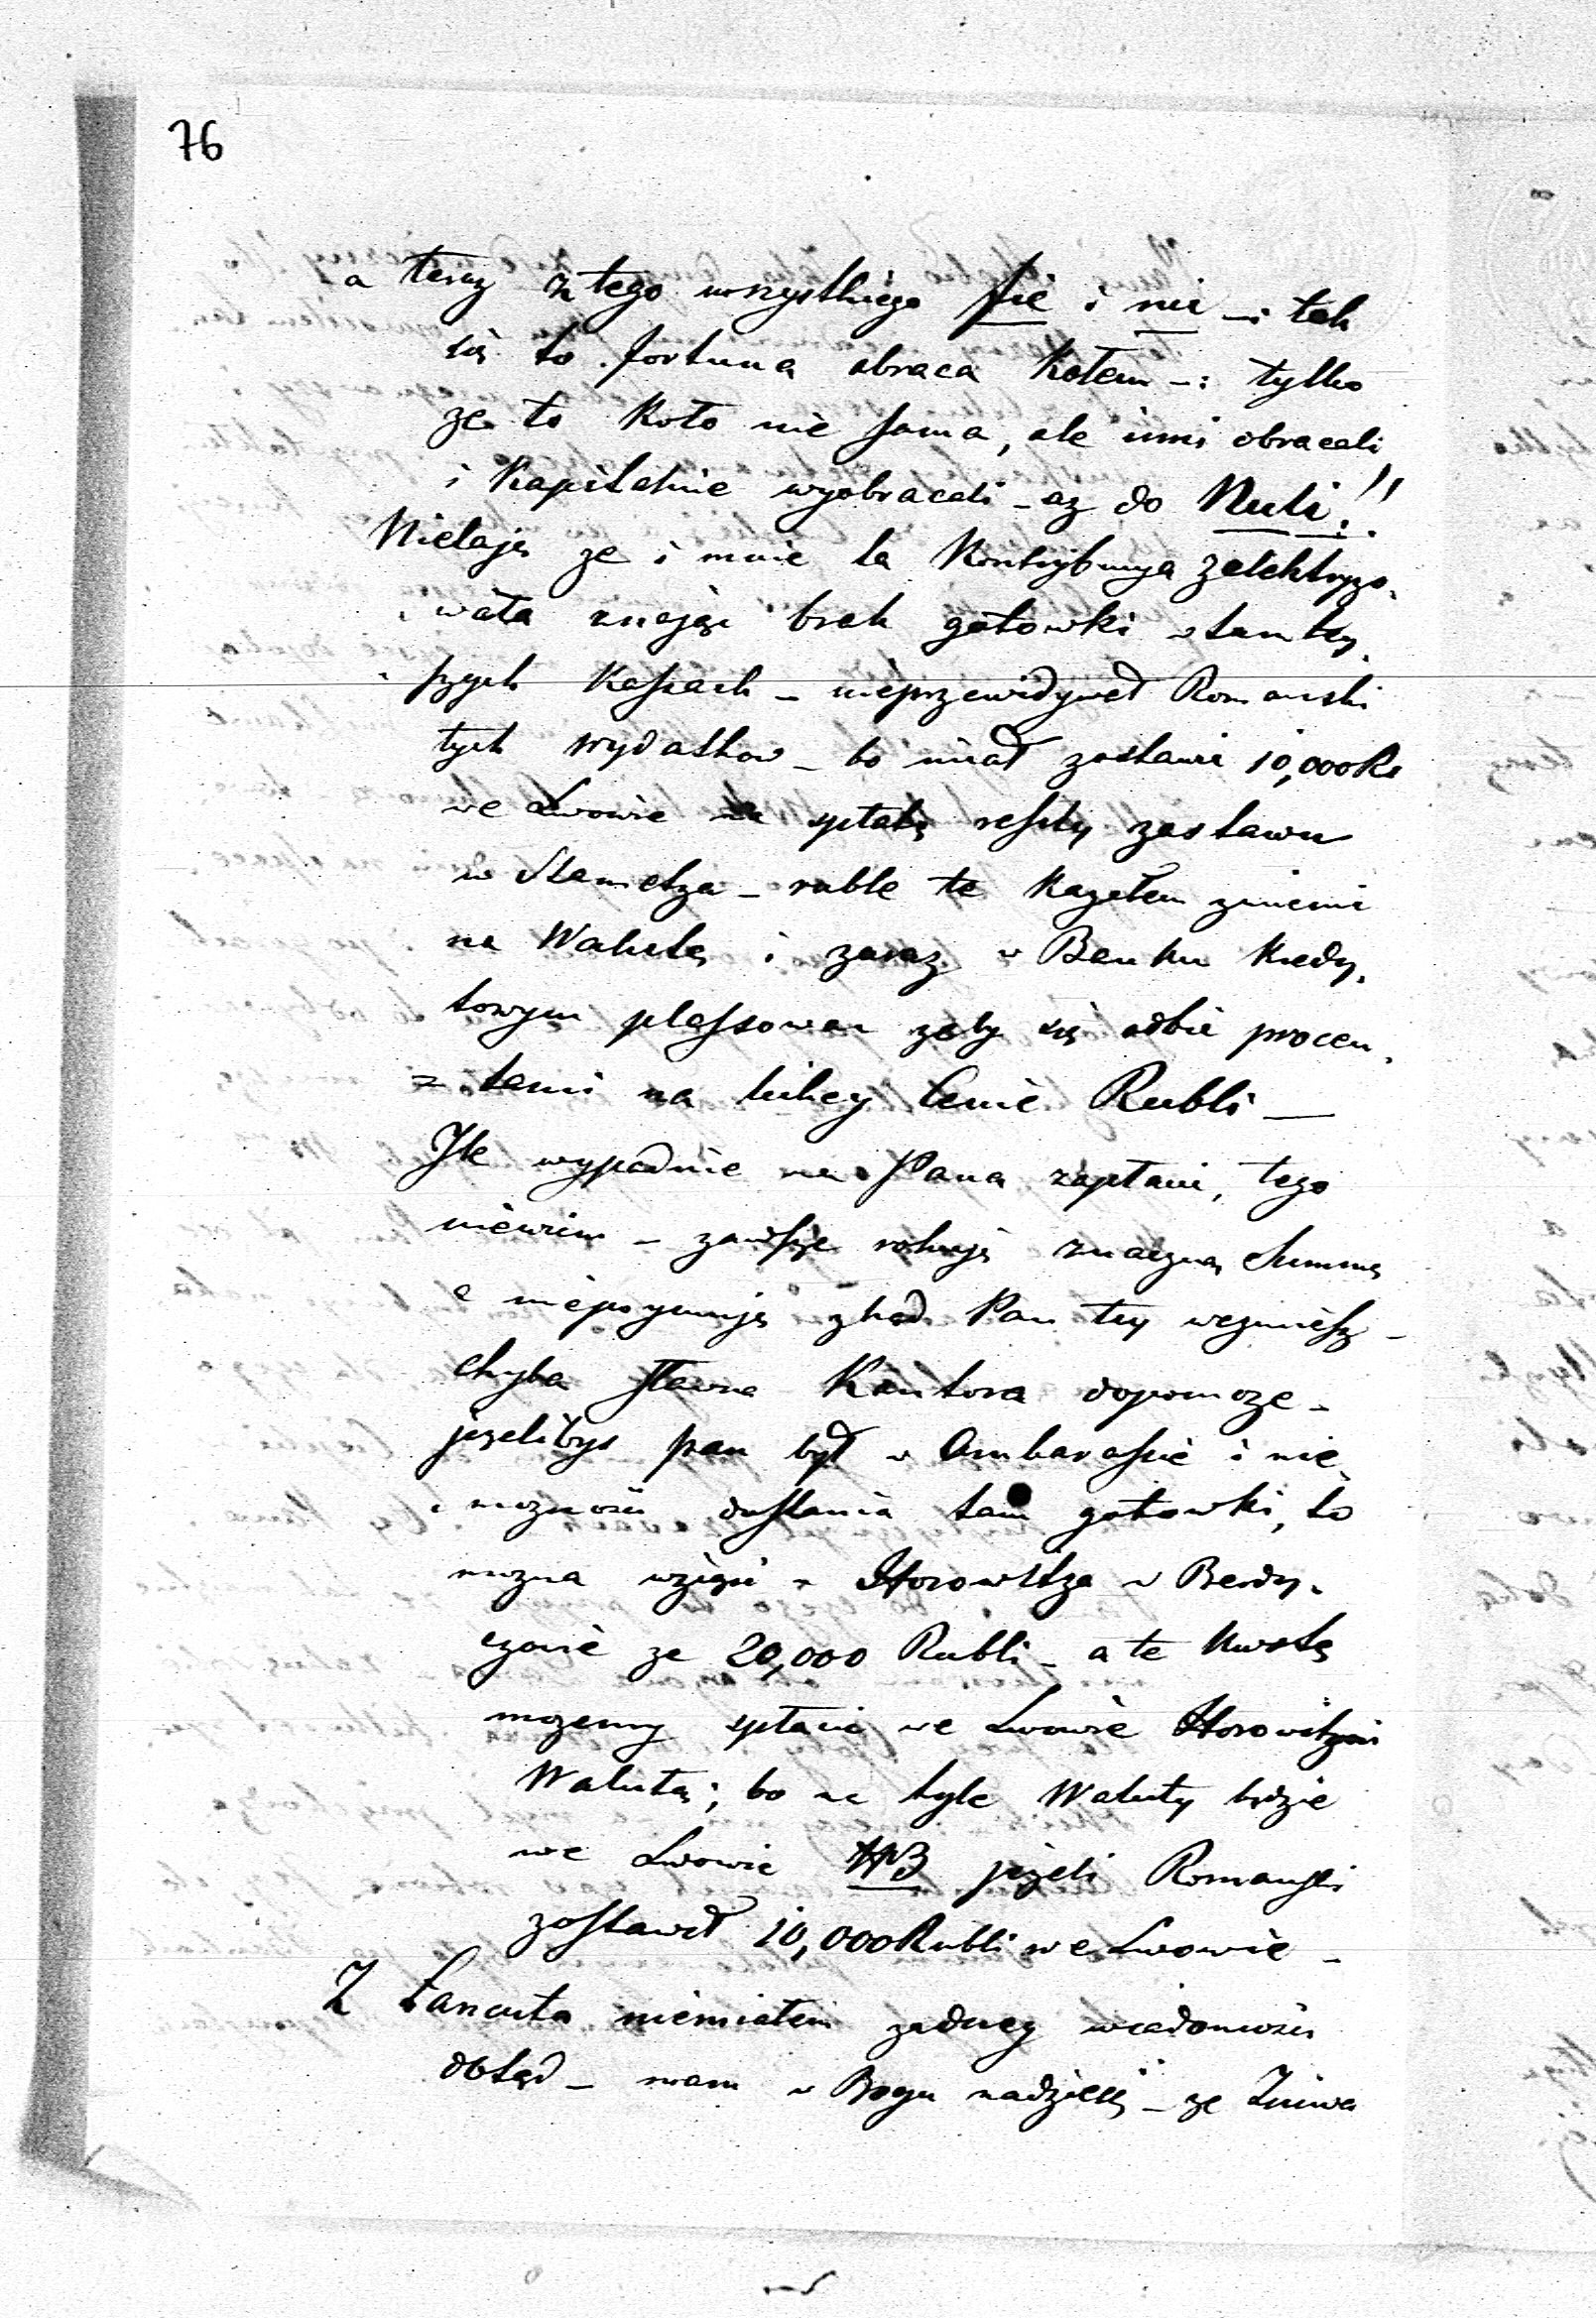 76
a teraz z tego wszystkiego fie i nie – i tak
się to fortuna obraca Kołem –: tylko
ze to Koło nie sama, ale inni obracali
i Kapitalnie wyobracali – az do Nuli!!
Nietaję ze i mnie ta Kontrybucya zelektryzo-
wała znając brak gotowki w tamtey-
szych Kassach – nieprzewidywał Romanski
tych wydatkow – bo miał zostawić 10,000 Rs
we Lwowie na spłatę reszty zastawu
w Stametza – ruble te Kazałem zmienić
na Walutę i zaraz w Banku Kredy-
towym plassować zeby się odbić procen-
tami na lichey cenie Rubli —
Ile wypadnie na Pana zapłacić, tego
niewiem – zawsze rokuję znaczną Summę
a niepoymuję zkąd Pan tey wezmiesz –
chyba sławna Kantora dopomoze –
jezelibys pan był w Ambarasie i nie-
moznosci dostania tam gotowki, to
mozna wziąść u Horowitza w Berdy-
czowie ze 20,000 Rubli – a te Kwotę
mozemy spłacić we Lwowie Horowitzowi
Walutą; bo na tyle Waluty będzie
we Lwowie NB jezeli Romanski
zostawił 10,000 Rubli we Lwowie –
Z Łancuta niemiałem zadney wiadomosci
dotąd – mam w Bogu nadzieję – ze Żniwa